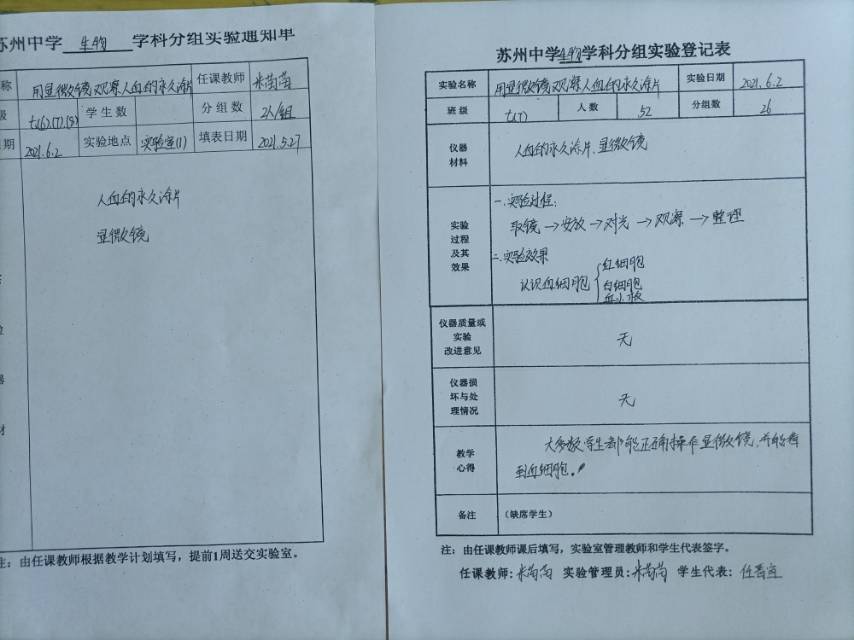 苏州中学 生物 学科分组实验通知单
称 用显微镜观察人血的永久涂片 任课教师
级 七(6).(7).(5) 学生数 分组数 2人/组
期 2021.6.2 实验地点 实验室(1) 填表日期 2021.5.27
人血的永久涂片
显微镜
器
材
注：由任课教师根据教学计划填写，提前1周送交实验室。
苏州中学生物学科分组实验登记表
实验名称 用显微镜观察人血的永久涂片 实验日期 2021.6.2
班级 七(7) 人数 52 分组数 26
仪器
材料
人血的永久涂片.显微镜
实验
过程
及其
效果
一.实验过程：
取镜→安放→对光→观察→整理
二.实验效果
认识血细胞 红细胞
白细胞
血小板
仪器质量或
实验
改进意见
无
仪器损
坏与处
理情况
无
教学
心得
大多数学生都能正确操作显微镜,并能看
到血细胞。
备注 （缺席学生）
注：由任课教师课后填写，实验室管理教师和学生代表签字。
任课教师: 实验管理员: 学生代表: